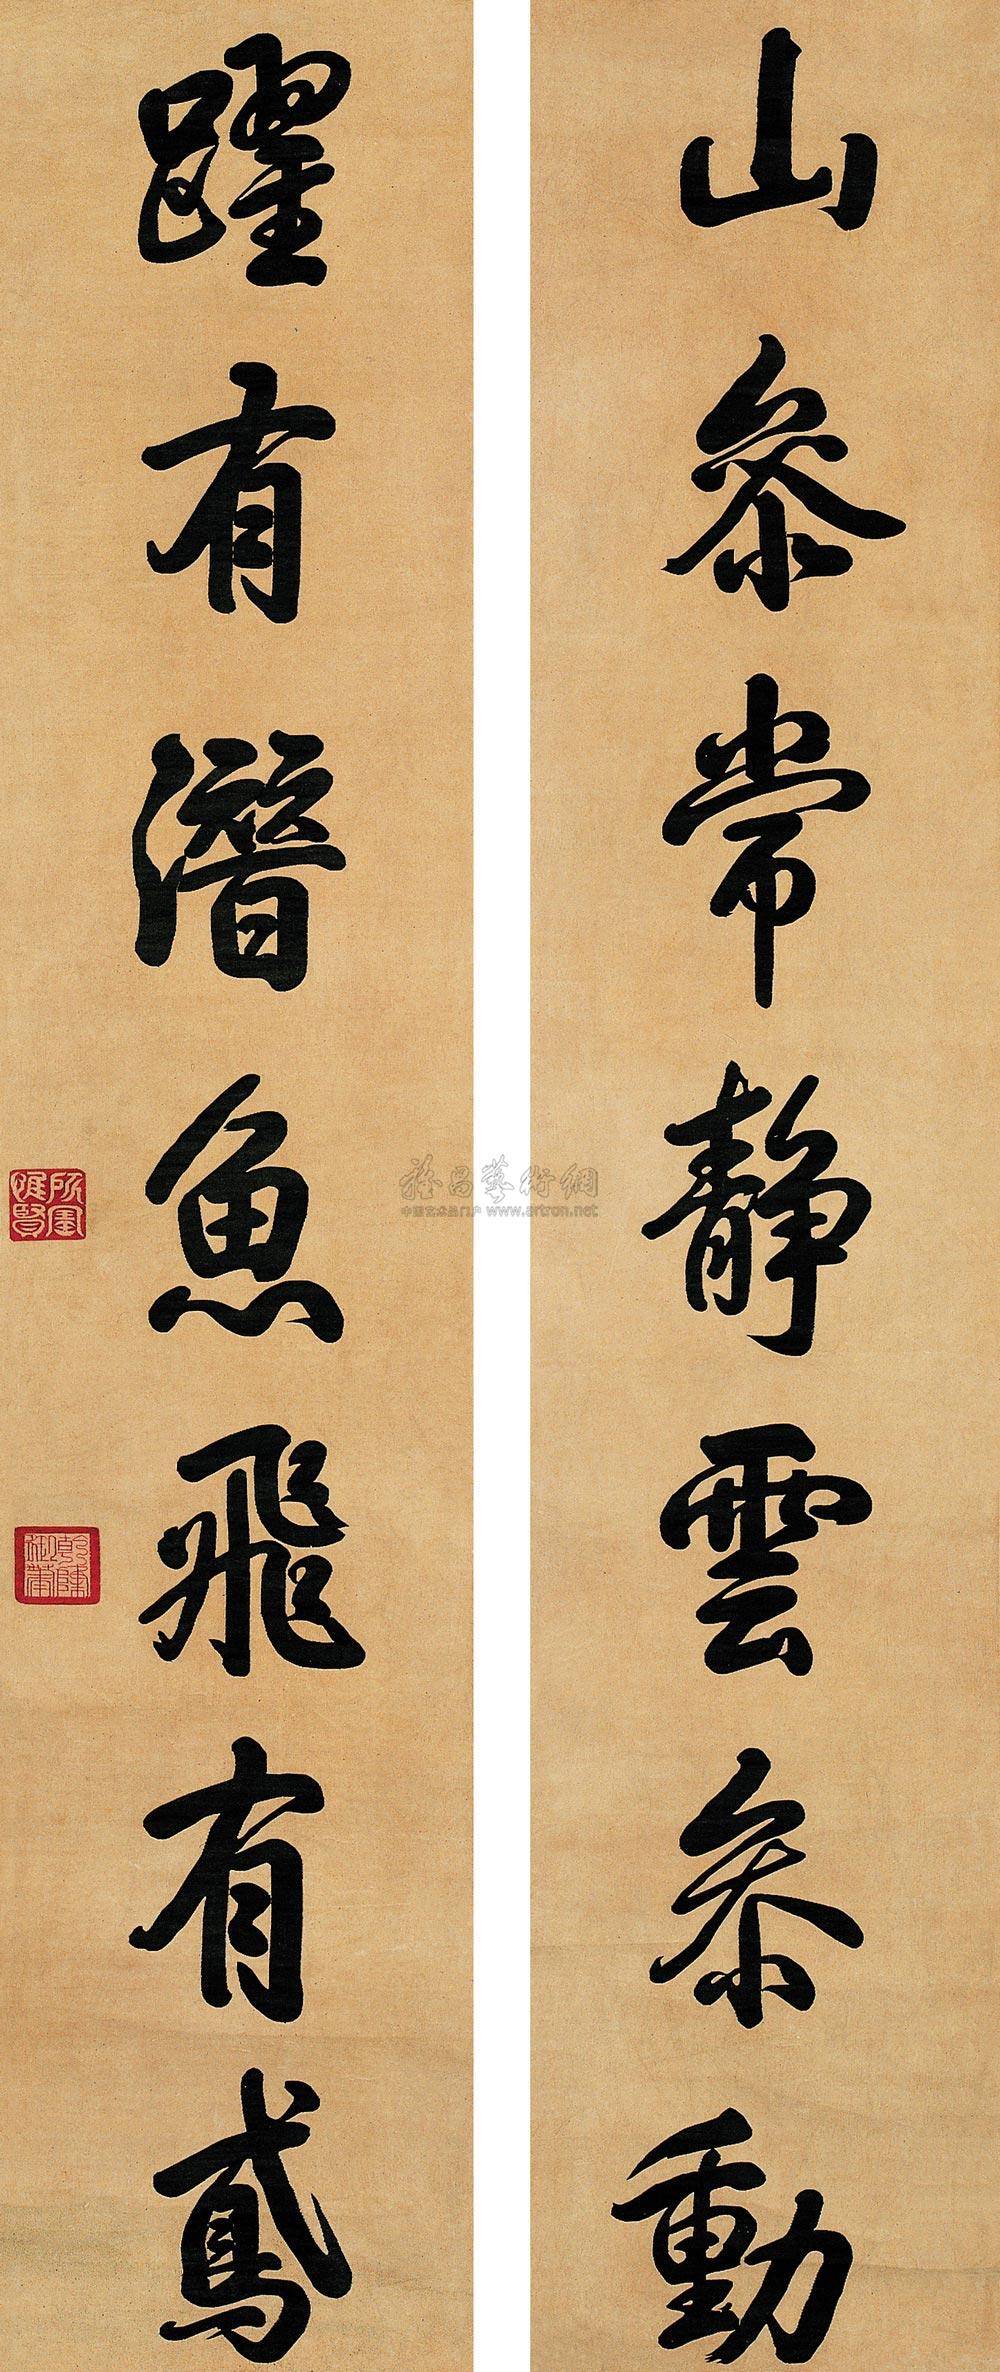 山叅常靜雲叅動
躍有潛魚飛有鳶
所寶惟賢
乾隆御筆
雅昌藝術網
中国艺术品门户 www.artron.net